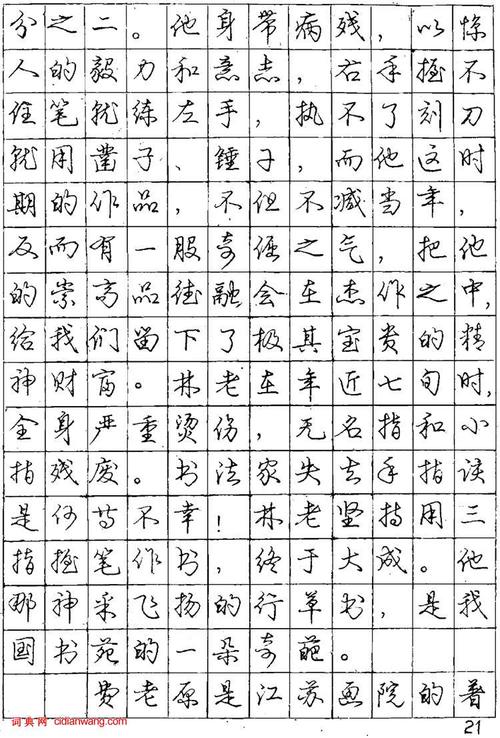 分之二。他身带病残，以惊
人的毅力和意志，右手握不
住笔就练左手，执不了刻刀
就用凿子、锤子，而他这时
期的作品，不但不减当年，
反而有一股奇倔之气，把他
的崇高品德融会在杰作之中，
给我们留下了极其宝贵的精
神财富。林老在年近七旬时，
全身严重烫伤，无名指和小
指残废。书法家失去手指该
是何等不幸！林老坚持用三
指握笔作书，终于大成。他
那神采飞扬的行草书，是我
国书苑的一朵奇葩。
费老原是江苏画院的普
词典网 cidianwang.com
21